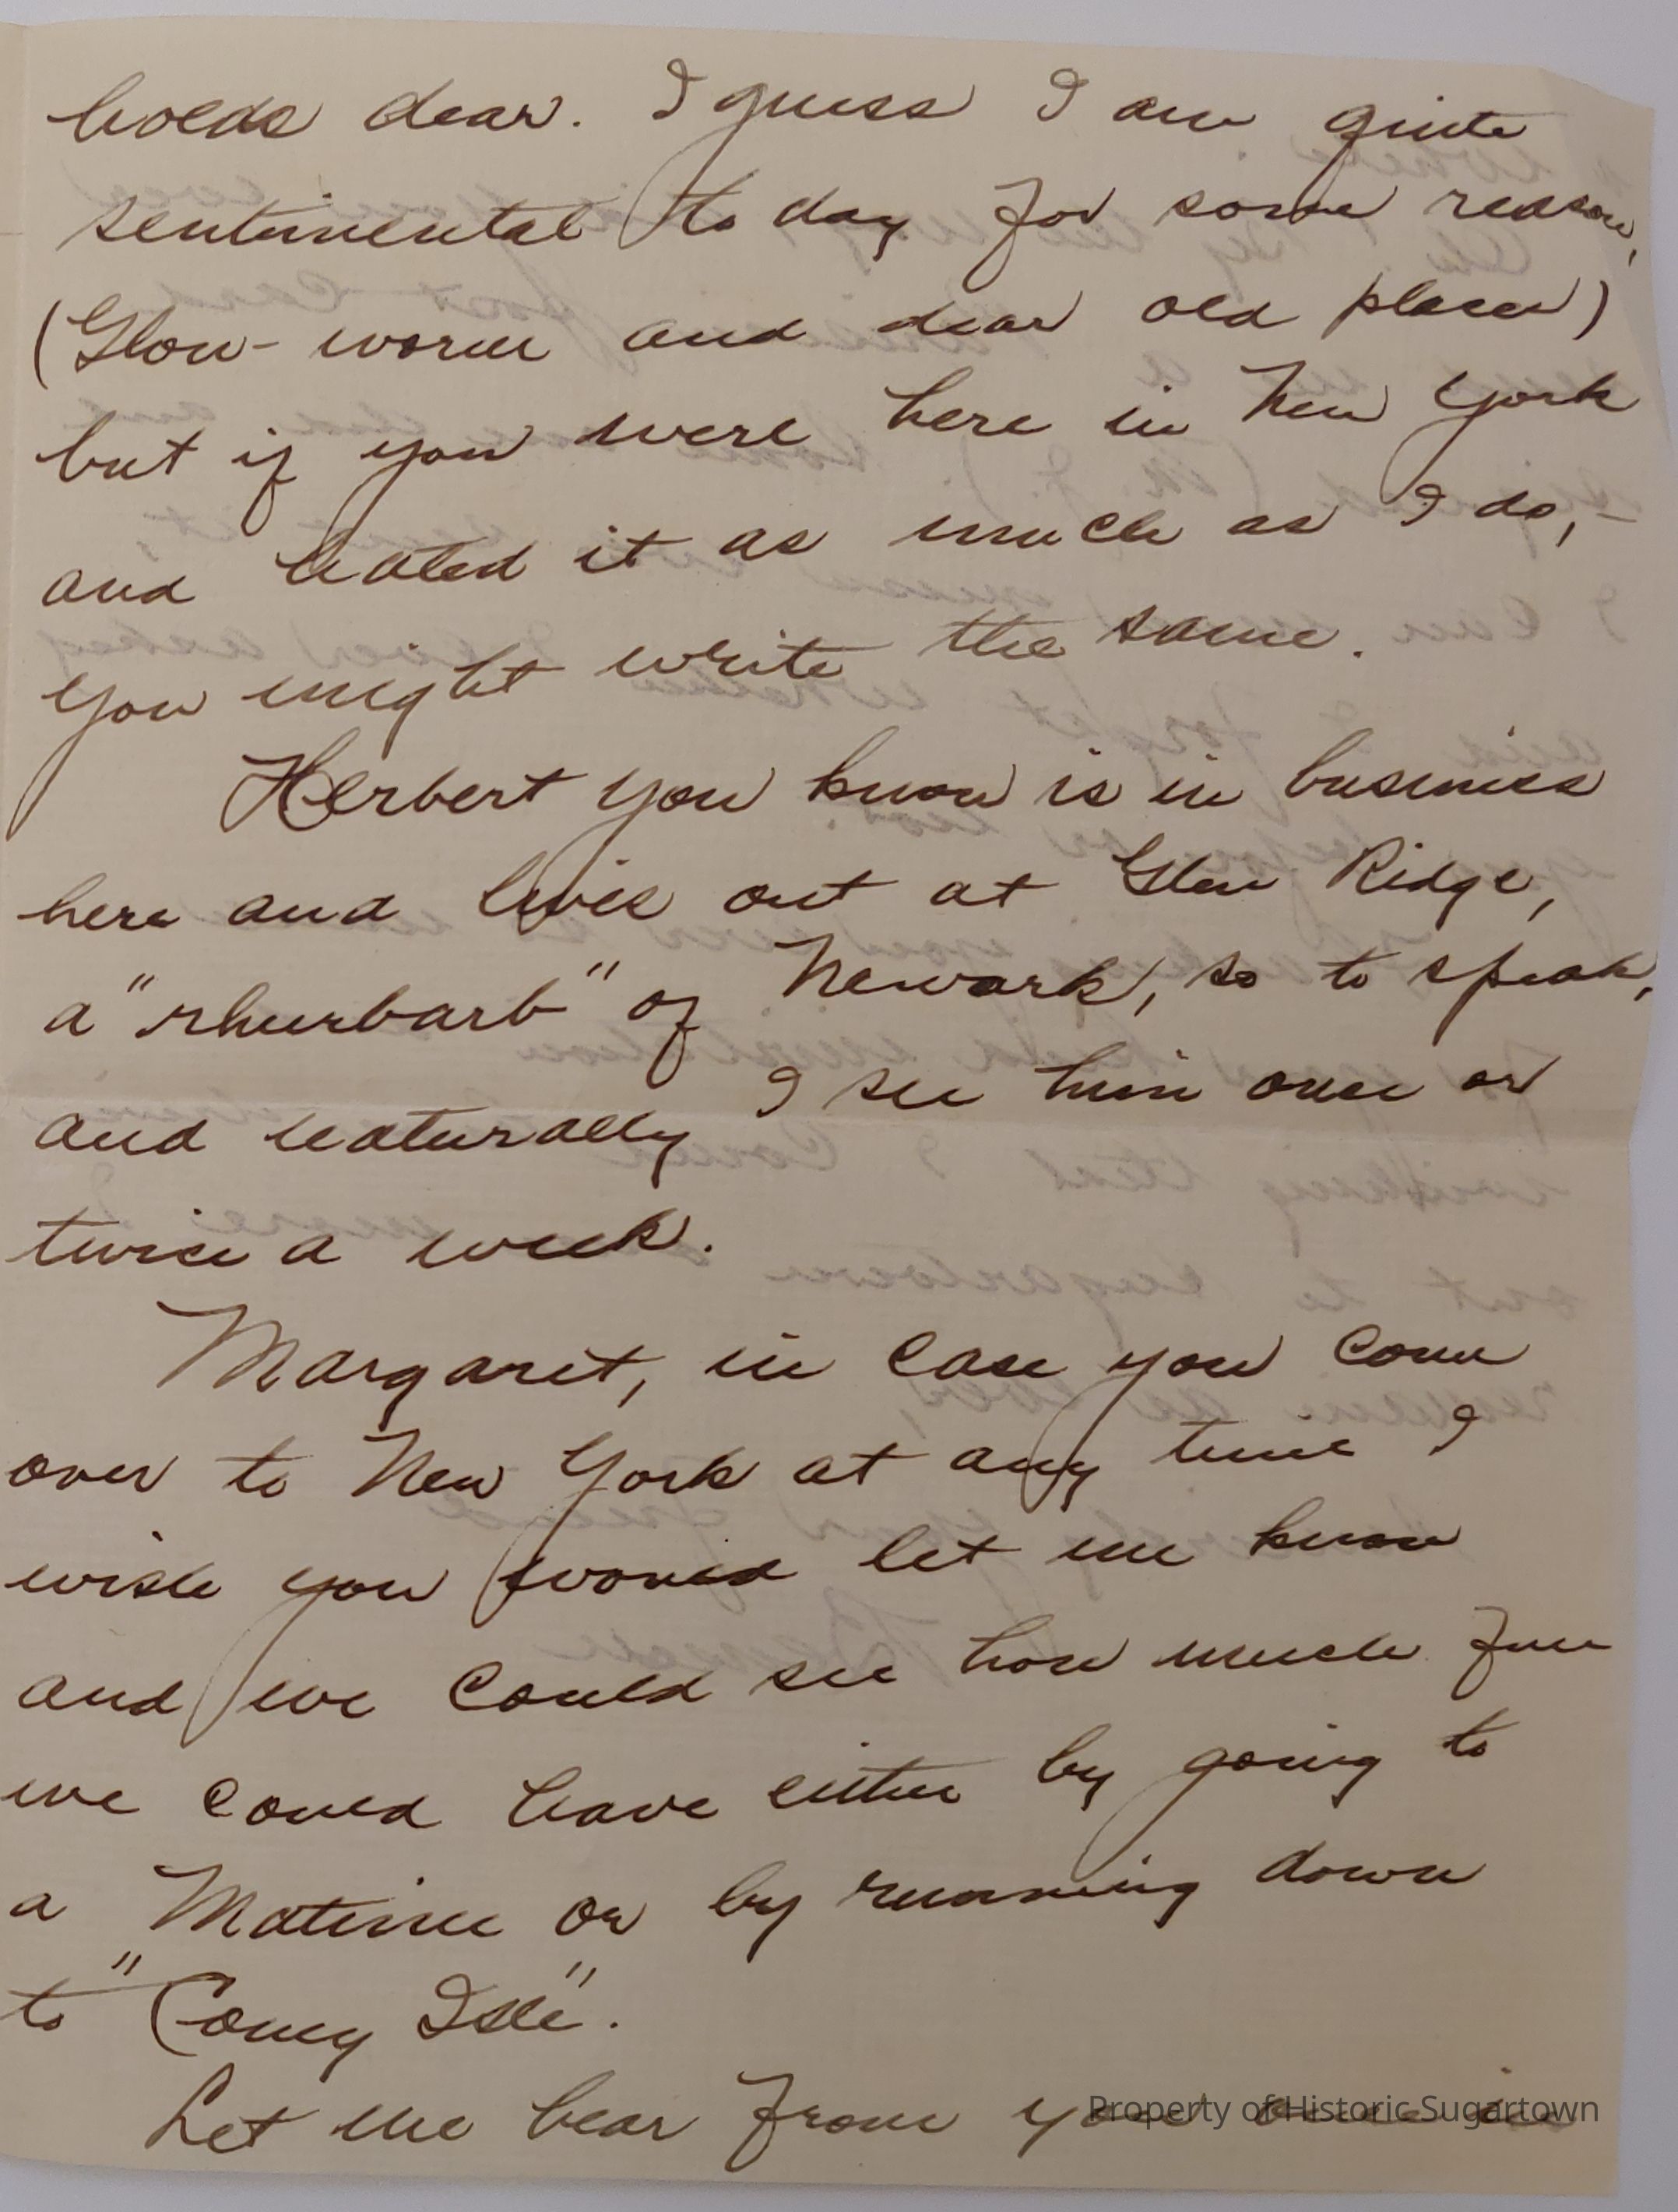 holds dear. I guess I am quite
sentimental to day for some reason,
(Glow-worm and dear old place)
but if you were here in New York
and hated it as much as I do,-
you might write the same.
Herbert you know is in business
here and lives out at Glen Ridge,
a "rhurbarb" of Newark, so to speak,
and naturally I see him once or
twice a week.
Margaret, in case you come
over to New York at any time I
wish you would let me know
and we could see how much fun
we could have either by going to
a Matinee or by running down
to "Coney Isle".
Let me hear from you once in
Property of Historic Sugartown